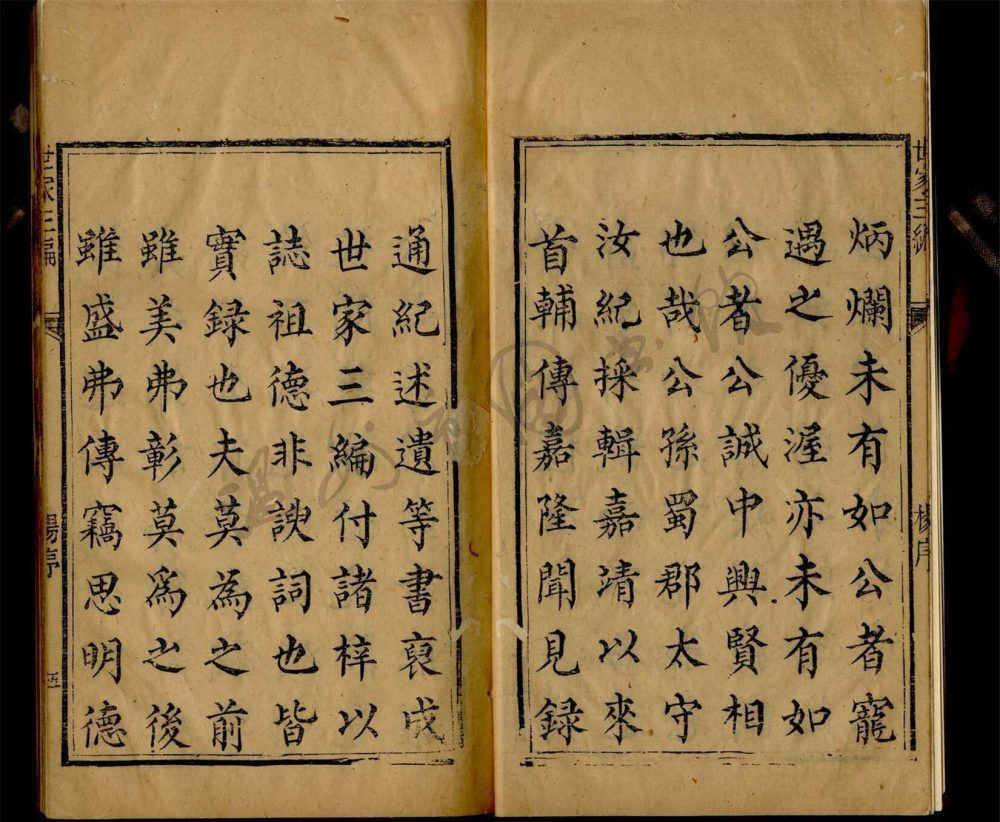 炳爛未有如公者寵
遇之優渥亦未有如
公者公誠中興賢相
也哉公孫蜀郡太守
汝紀採輯嘉靖以來
首輔傳嘉隆聞見録
通紀述遺等書裒成
世家三編付諸梓以
誌祖德非諛詞也皆
實録也夫莫為之前
雖美弗彰莫爲之後
雖盛弗傳竊思明德
世家三編
楊序
五